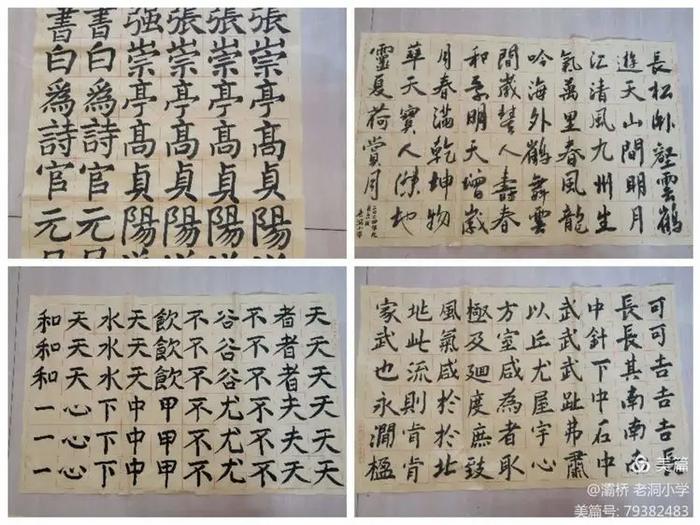 張崇亭高貞陽
張崇亭高貞陽
張崇亭高貞陽
強崇亭高貞陽
書白為詩官元
書白為詩官元
長松臥壑雲鶴
遊天山間明月
江清風九州生
氣萬里春風龍
吟海外鶴舞雲
間歲人壽春
和景明天增歲
月春滿乾坤物
華天寶人傑地
靈夏荷賞月
天天天天天天
者者者夫夫夫
不不不不不不
谷谷谷尤尤尤
不不不不不不
飲飲飲甲甲甲
天天天中中中
水水水下下下
天天天心心心
和和和一一一
可可吉吉吉長
長長其南南南
中針下中石中
武武武趾弗肅
以丘尤屋宇心
方室咸為者取
極及廻度庶致
風氣咸於於北
地此流則肯肯
家武也永澗楹
美篇
@灞桥 老洞小学
美篇号: 79382483